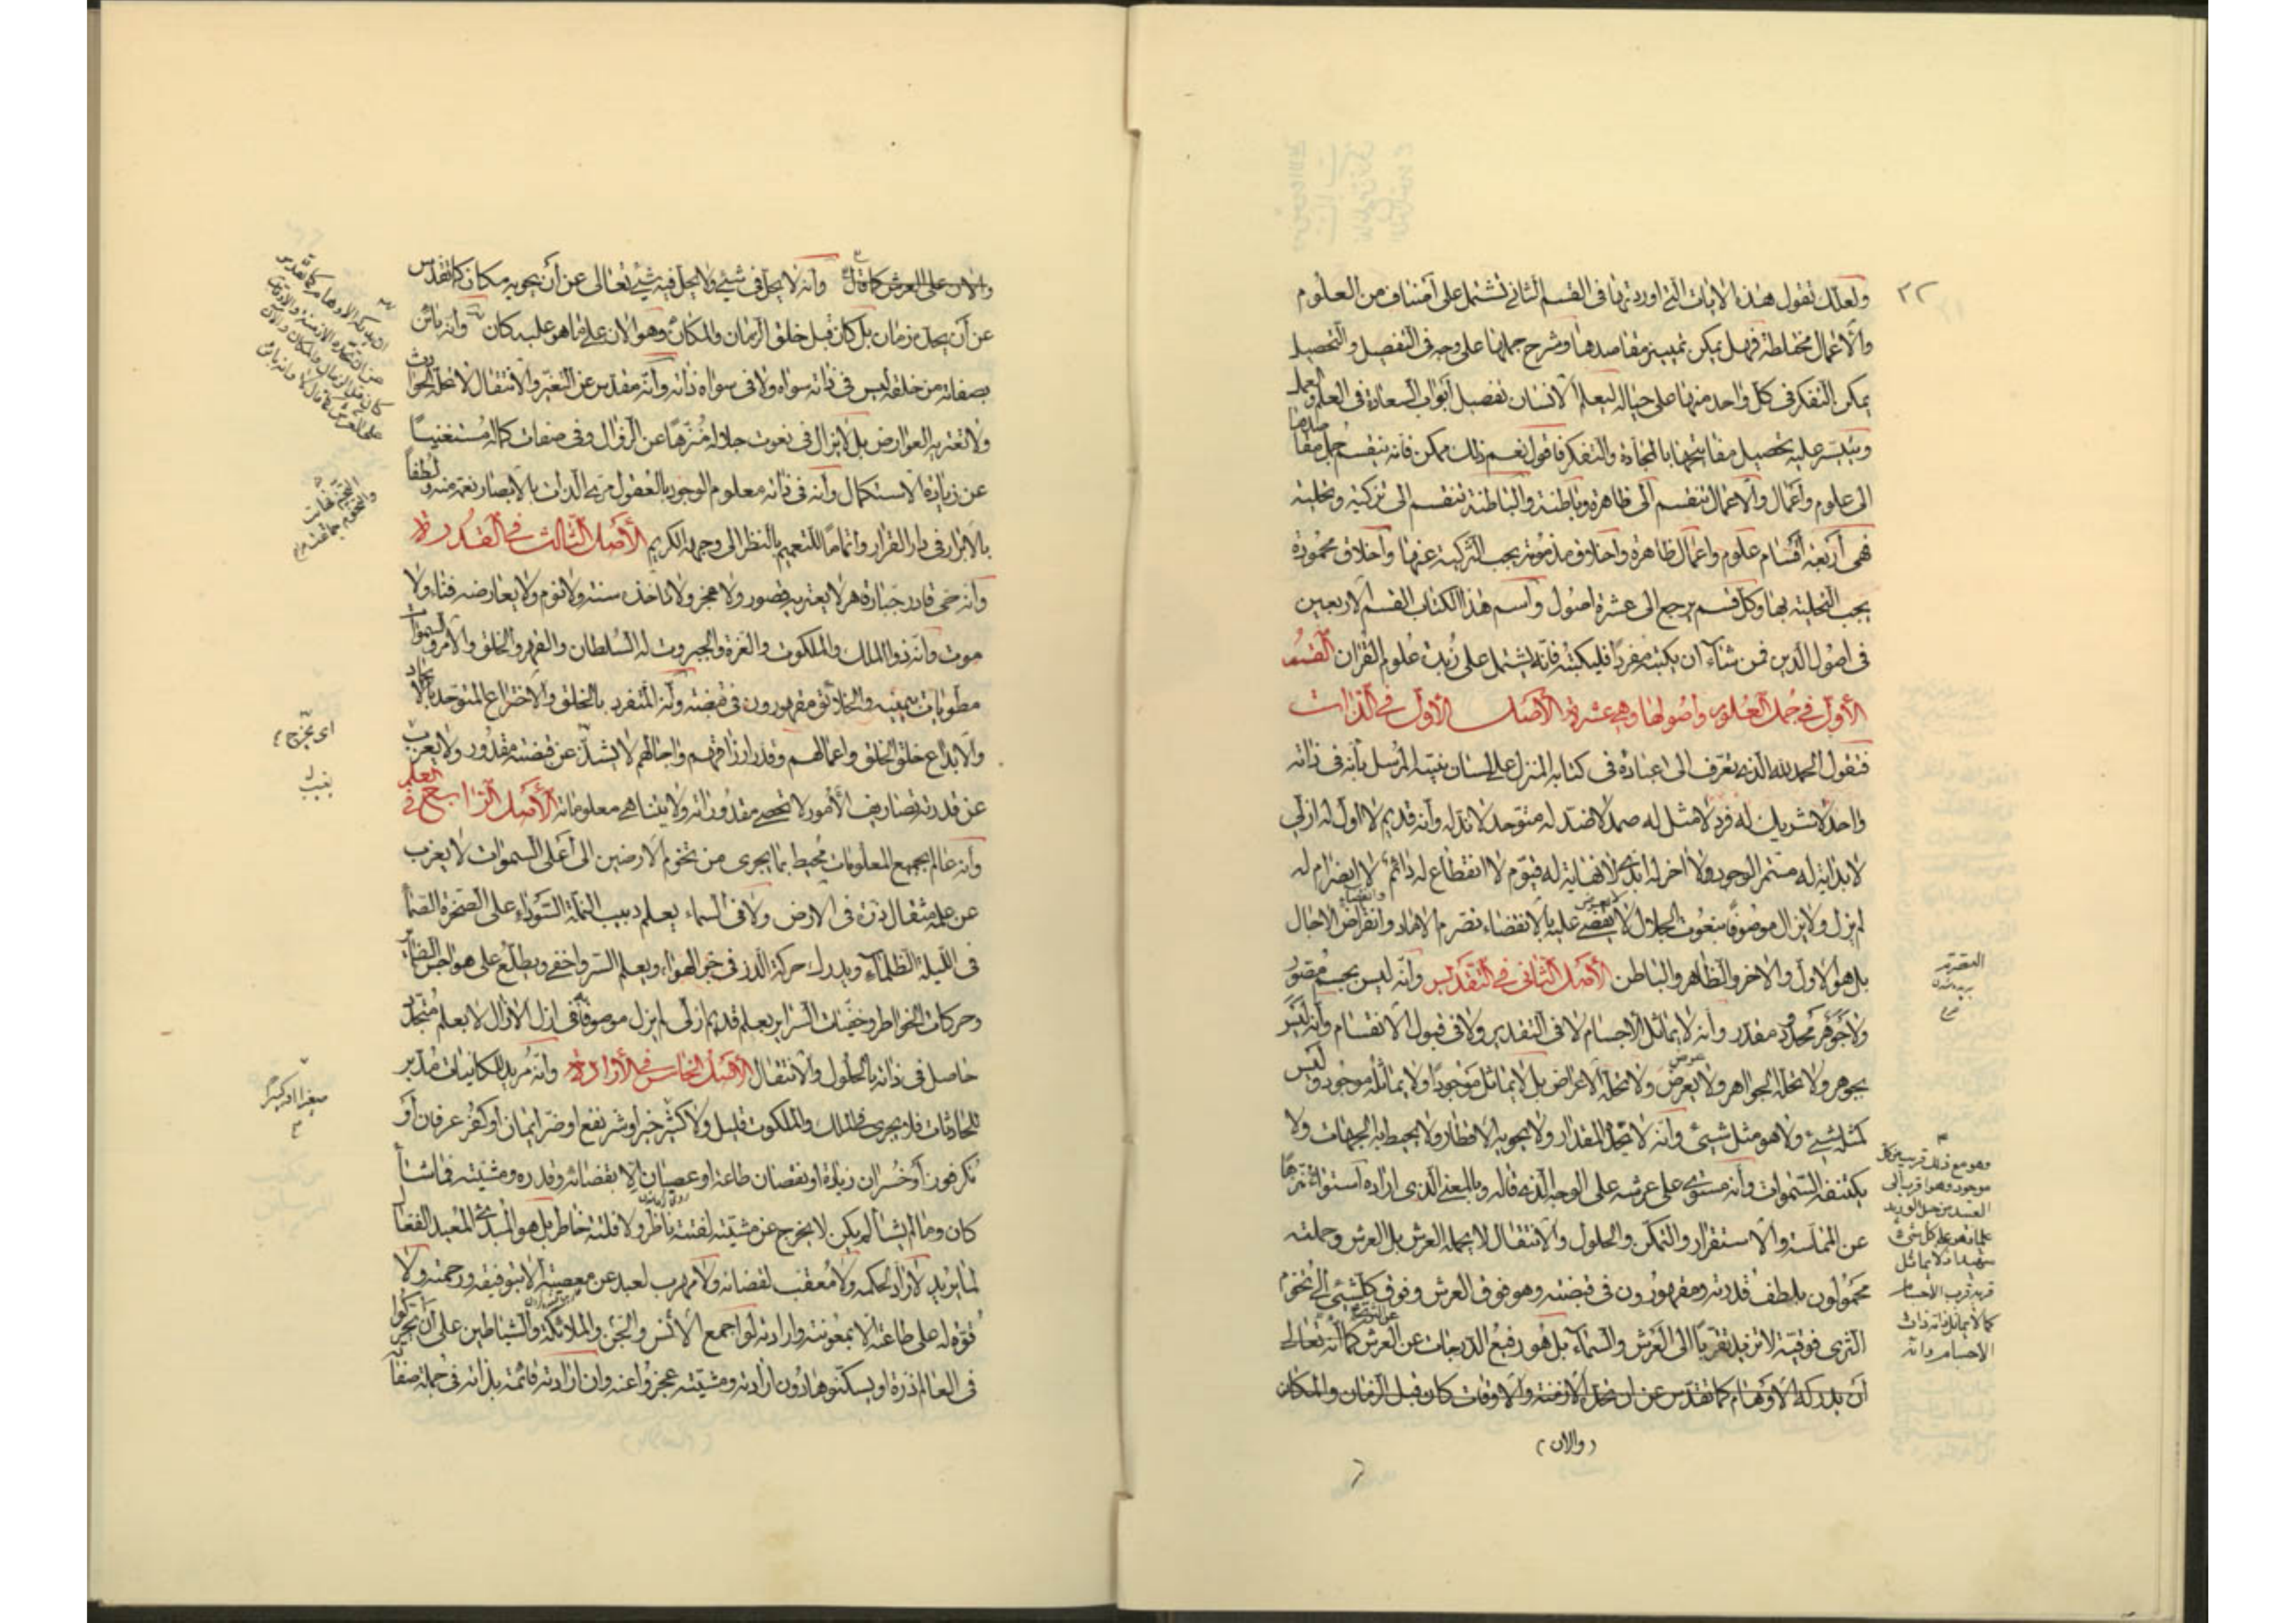 ٢٢
ولعلك تقول هذه الايات التي اوردتها في القسم الثاني تشتمل على اصناف من العلوم
والاعمال مختلطة فهل يمكن تمييز مقاصدها وشرح جملها على وجه في التفصيل والتحصيل
يمكن التفكر في كل واحد منها على حياله ليعلم الانسان تفصيل ابواب السعادة في العلم والعمل
ويتيسر عليه تحصيل مفاتيحها بالمجاهدة والتفكر فاقول نعم ذلك ممكن فانه ينقسم جمل مقاصدها
الى علوم واعمال والاعمال تنقسم الى ظاهرة وباطنة والباطنة تنقسم الى تزكية وتحلية
فهي أربعة أقسام علوم واعمال ظاهرة واخلاق مذمومة يجب التزكية عنها واخلاق محمودة
يجب التحلية بها وكل قسم يرجع الى عشرة اصول واسم هذا الكتاب القسم الاربعين
في اصول الدين فمن شاء ان يكتبه مفردا فليكتبه فانه يشتمل على زبدة علوم القران القسم
الأول في جمل العلوم واصولها وهي عشرة الأصل الأول في الذات
فنقول الحمد لله الذي تعرف الى عباده في كتابه المنزل على لسان نبيه المرسل بأنه في ذاته
واحد لا شريك له فرد لا مثل له صمد لا ضد له متوحد لا ند له وأنه قديم لا اول له ازلي
لا بداية له مستمر الوجود ولا اخر له ابدي لا نهاية له قيوم لا انقطاع له دائم لا انصرام له
لم يزل ولا يزال موصوفا بنعوت الجلال لا يقضى عليه بالانقضاء تصرم الاماد وانقراض الاجال
بل هو الاول والاخر والظاهر والباطن الأصل الثاني في التقديس وأنه ليس بجسم مصور
ولا جوهر محدود مقدر وانه لا يماثل الاجسام لا في التقدير ولا في قبول الانقسام وأنه ليس
بجوهر ولا تحله الجواهر ولا بعرض ولا تحله الاعراض بل لا يماثل موجودا ولا يماثله موجود وليس
كمثله شيئ ولا هو مثل شيئ وانه لا يحده المقدار ولا يحويه الاقطار ولا يحيط به الجهات ولا
يكتنفه السموات وأنه مستو على عرشه على الوجه الذي قاله وبالمعنى الذي اراده استواء منزها
عن المماسة والاستقرار والتمكن والحلول والانتقال لا يحمله العرش بل العرش وحملته
محمولون بلطف قدرته ومقهورون في قبضته وهو فوق العرش وفوق كل شيئ الى تخوم
الثرى فوقية لا تزيده تقربا الى العرش والسماء بل هو رفيع الدرجات عن العرش كما أنه تعالى
أن يدركه الاوهام كما تقدس عن ان تحده الازمنة والاوقات كان قبل الزمان والمكان
(والان)
التصرم
بريده شدن
وهو مع ذلك قريب من كل
موجود وهو اقرب الى
العبد من حبل الوريد
وهو على كل شيئ
شهيد اذ لا يماثل
قربه قرب الاجسام
كما لا يماثل ذاته ذات
الاجسام وانه
والان على العرش كما قال وأنه لا يحل في شيئ ولا يحل فيه شيئ تعالى عن أن يحويه مكان كما تقدس
عن أن يحده زمان بل كان قبل خلق الزمان والمكان وهو الان على ما هو عليه كان وأنه بائن
بصفاته من خلقه ليس في ذاته سواه ولا في سواه ذاته وأنه مقدس عن التغير والانتقال لا تحله الحوادث
ولا تعتريه العوارض بل لا يزال في نعوت جلاله منزها عن الزوال وفي صفات كماله مستغنيا
عن زيادة الاستكمال وأنه في ذاته معلوم الوجود بالعقول مرئي الذات بالابصار نعمة منه ولطفا
بالابرار في دار القرار واتماما للنعيم بالنظر الى وجهه الكريم الأصل الثالث في القدرة
وأنه حي قادر جبار قاهر لا يعتريه قصور ولا عجز ولا تاخذه سنة ولا نوم ولا يعارضه فناء ولا
موت وأنه ذو الملك والملكوت والعزة والجبروت له السلطان والقهر والخلق والامر والسموات
مطويات بيمينه والخلائق مقهورون في قبضته وأنه المتفرد بالخلق والاختراع المتوحد بالايجاد
والابداع خلق الخلق واعمالهم وقدر ارزاقهم واجالهم لا يشذ عن قبضته مقدور ولا يعزب
عن قدرته تصاريف الأمور لا تحصى مقدوراته ولا يتناهى معلوماته الأصل الرابع في العلم
وأنه عالم بجميع المعلومات محيط بما يجري من تخوم الارضين الى أعلى السموات لا يعزب
عن علمه مثقال ذرة في الارض ولا في السماء يعلم دبيب النملة السوداء على الصخرة الصماء
في الليلة الظلماء ويدرك حركة الذر في جو الهواء ويعلم السر واخفى ويطلع على هواجس الضمائر
وحركات الخواطر وخفيات السراير بعلم قديم ازلي لم يزل موصوفا به في ازل الازال لا بعلم متجدد
حاصل في ذاته بالحلول والانتقال الأصل الخامس في الأرادة وأنه مريد للكائنات مدبر
للحادثات فلا يجري في الملك والملكوت قليل ولا كثير خير او شر نفع او ضر ايمان او كفر عرفان أو
نكر فوز أو خسران زيادة او نقصان طاعة او عصيان الا بقضائه وقدره ومشيته فما شاء
كان وما لم يشأ لم يكن لا يخرج عن مشيته لفتة ناظر ولا فلتة خاطر بل هو المبدئ المعيد الفعال
لما يريد لا راد لحكمه ولا معقب لقضائه ولا مهرب لعبد عن معصيته الا بتوفيقه ورحمته ولا
قوة له على طاعته الا بمعونته وارادته لو اجمع الأنس والجن والملائكة والشياطين على أن يحركوا
في العالم ذرة او يسكنوها دون ارادته ومشيته عجزوا عنه وان ارادته قائمة بذاته في جملة صفاته
اى يخرج
يغيب